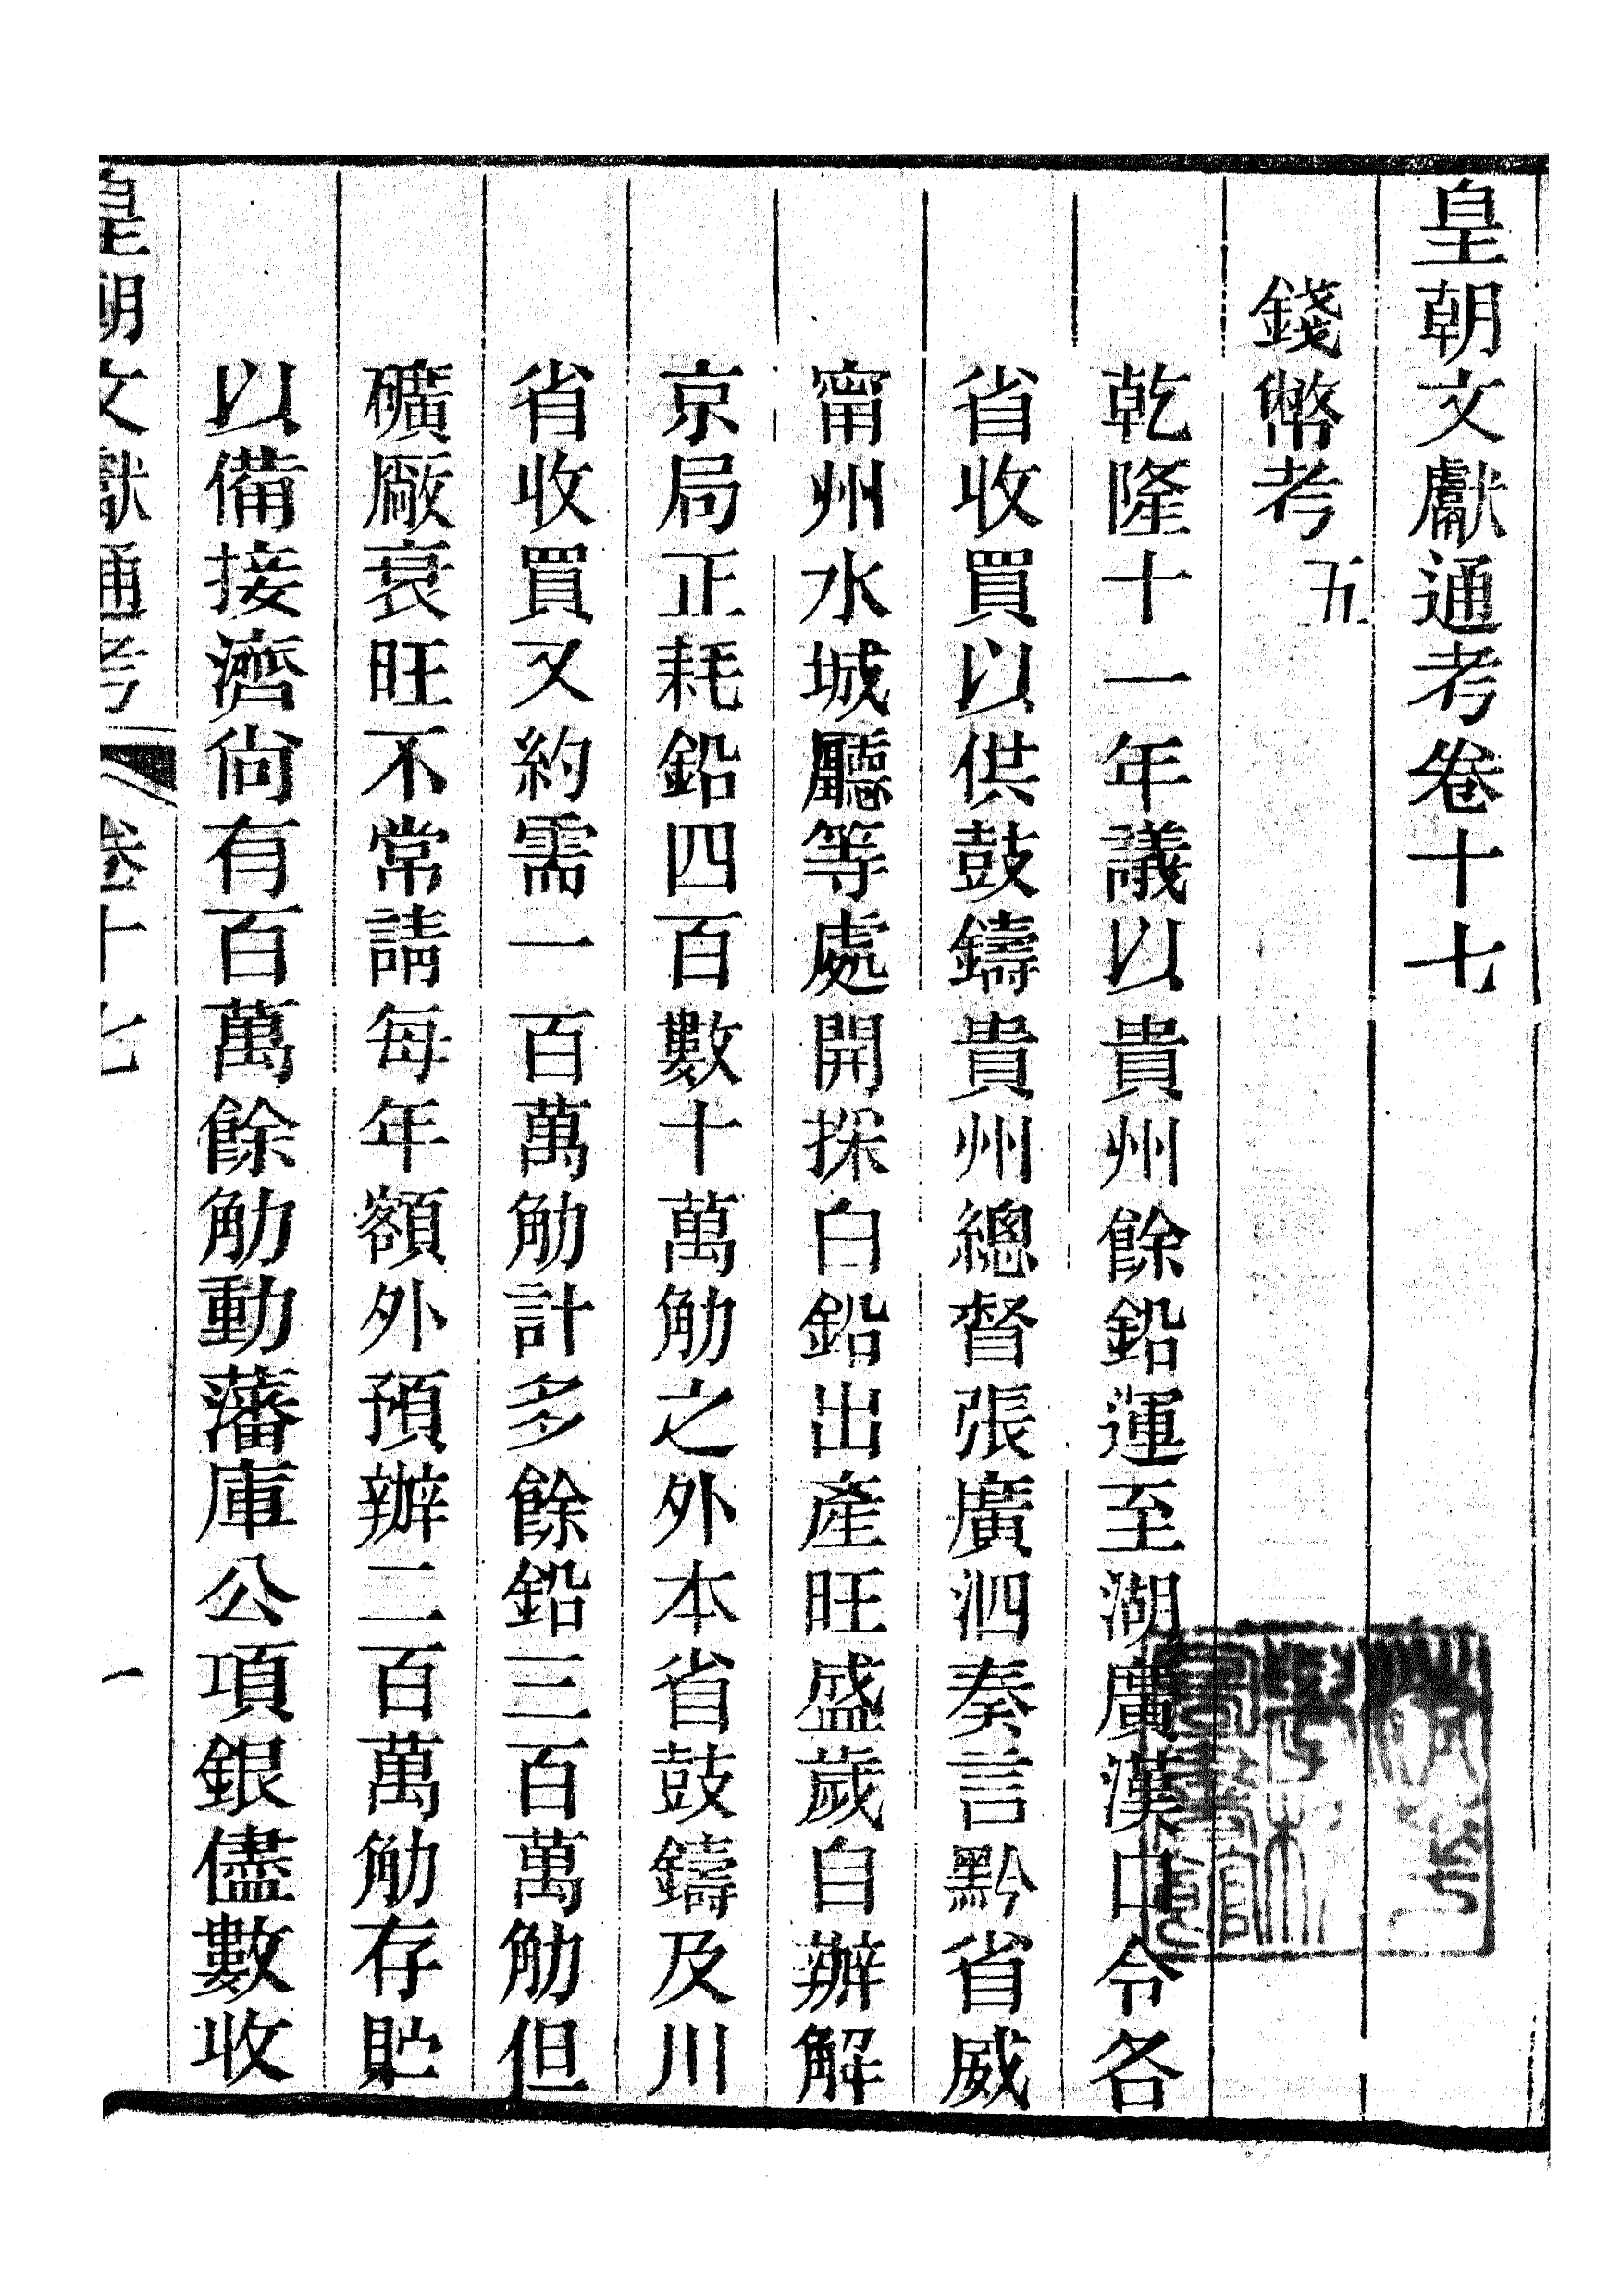 皇朝文獻通考卷十七
錢幣考五
乾隆十一年議以貴州餘鉛運至湖廣漢口令各
省收買以供鼓鑄貴州總督張廣泗奏言黔省威
甯州水城廳等處開採白鉛出產旺盛歲自辦解
京局正耗鉛四百數十萬觔之外本省鼓鑄及川
省收買又約需一百萬觔計多餘鉛三百萬觔但
礦厰衰旺不常請每年額外預辦二百萬觔存貯
以備接濟尚有百萬餘觔動藩庫公項銀儘數收
皇朝文獻通考 卷十七 一